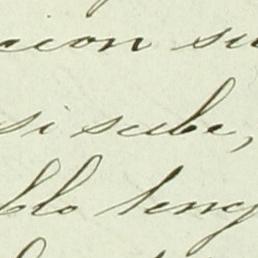 acion su
si sube,
blo leng